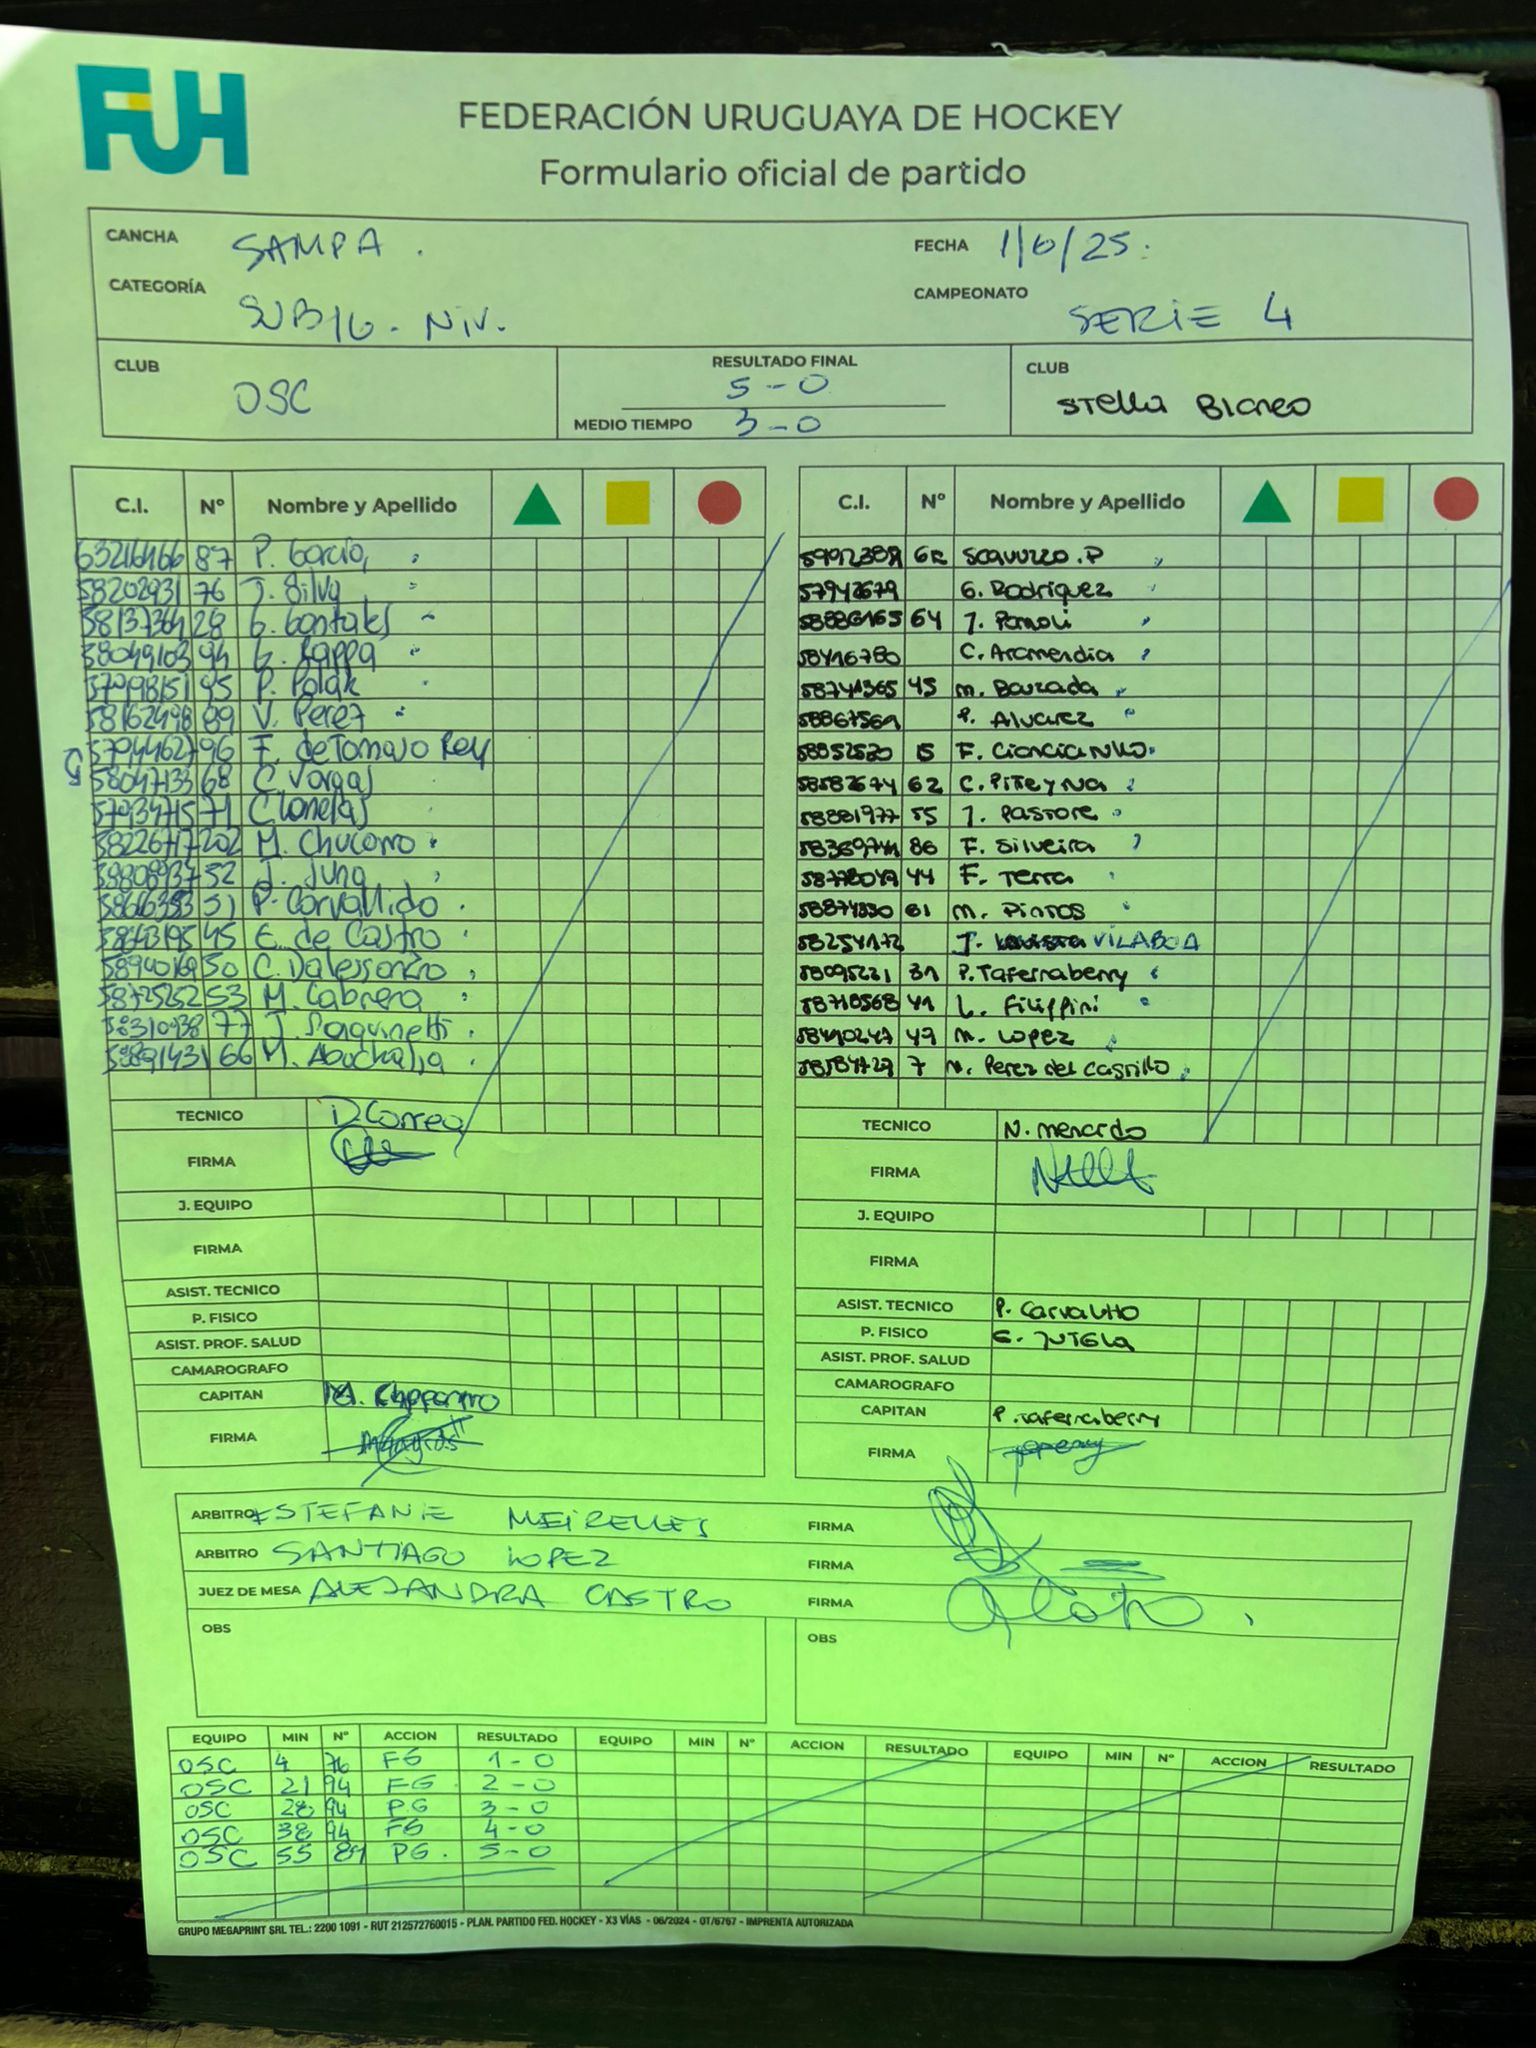 FUH
FEDERACIÓN URUGUAYA DE HOCKEY
Formulario oficial de partido
CANCHA SAMPA. FECHA 1/6/25.
CATEGORÍA SUB16. NIV. CAMPEONATO SERIE 4
CLUB OSC RESULTADO FINAL 5-0 CLUB Stella Blanco
MEDIO TIEMPO 3-0
C.I. Nº Nombre y Apellido C.I. Nº Nombre y Apellido
87 P. Garcia, Scavuzzo.P
58202931 76 J. Silva G. Rodriguez
28 64 J.
94 58416780 C. Aramendia
P. Polak 58741365 45 M.
58162498 89 V. Perez P. Alvarez
57944627 96 F. de Tomaso Rey 15 F.
58047133 68 C. Vargas 62 C.
57934715 71 58881977 55 J. Pastore
58226717 202 M. 86 F. Silveira
52 J. Jung 44 F. Terra
51 P. Carvallido 81 M. Pintos
45 E. de Castro 58254172 J. VILABOA
58940169 50 C. Dalessandro 58095231 31 P. Tafernaberry
58725252 53 M. Cabrera 58718568 41 L. Filippini
58310938 77 J. 49 M. Lopez
59891431 66 M. 7 N. Perez del Castillo
TECNICO D. Correa TECNICO N. menardo
FIRMA FIRMA
J. EQUIPO J. EQUIPO
FIRMA FIRMA
ASIST. TECNICO ASIST. TECNICO P.
P. FISICO P. FISICO
ASIST. PROF. SALUD ASIST. PROF. SALUD
CAMAROGRAFO CAMAROGRAFO
CAPITAN CAPITAN P. Tafernaberry
FIRMA FIRMA
ARBITRO ESTEFANIE MEIRELLES FIRMA
ARBITRO SANTIAGO LOPEZ FIRMA
JUEZ DE MESA ALEJANDRA CASTRO FIRMA
OBS OBS
EQUIPO MIN Nº ACCION RESULTADO EQUIPO MIN Nº ACCION RESULTADO EQUIPO MIN Nº ACCION RESULTADO
OSC 4 76 FG 1-0
OSC 21 94 FG. 2-0
OSC 28 94 P.G 3-0
OSC 38 94 FG 4-0
OSC 55 89 PG. 5-0
GRUPO MEGAPRINT SRL TEL.: 2200 1091 - RUT 212572760015 - PLAN. PARTIDO FED. HOCKEY - X3 VÍAS - 06/2024 - OT/6767 - IMPRENTA AUTORIZADA